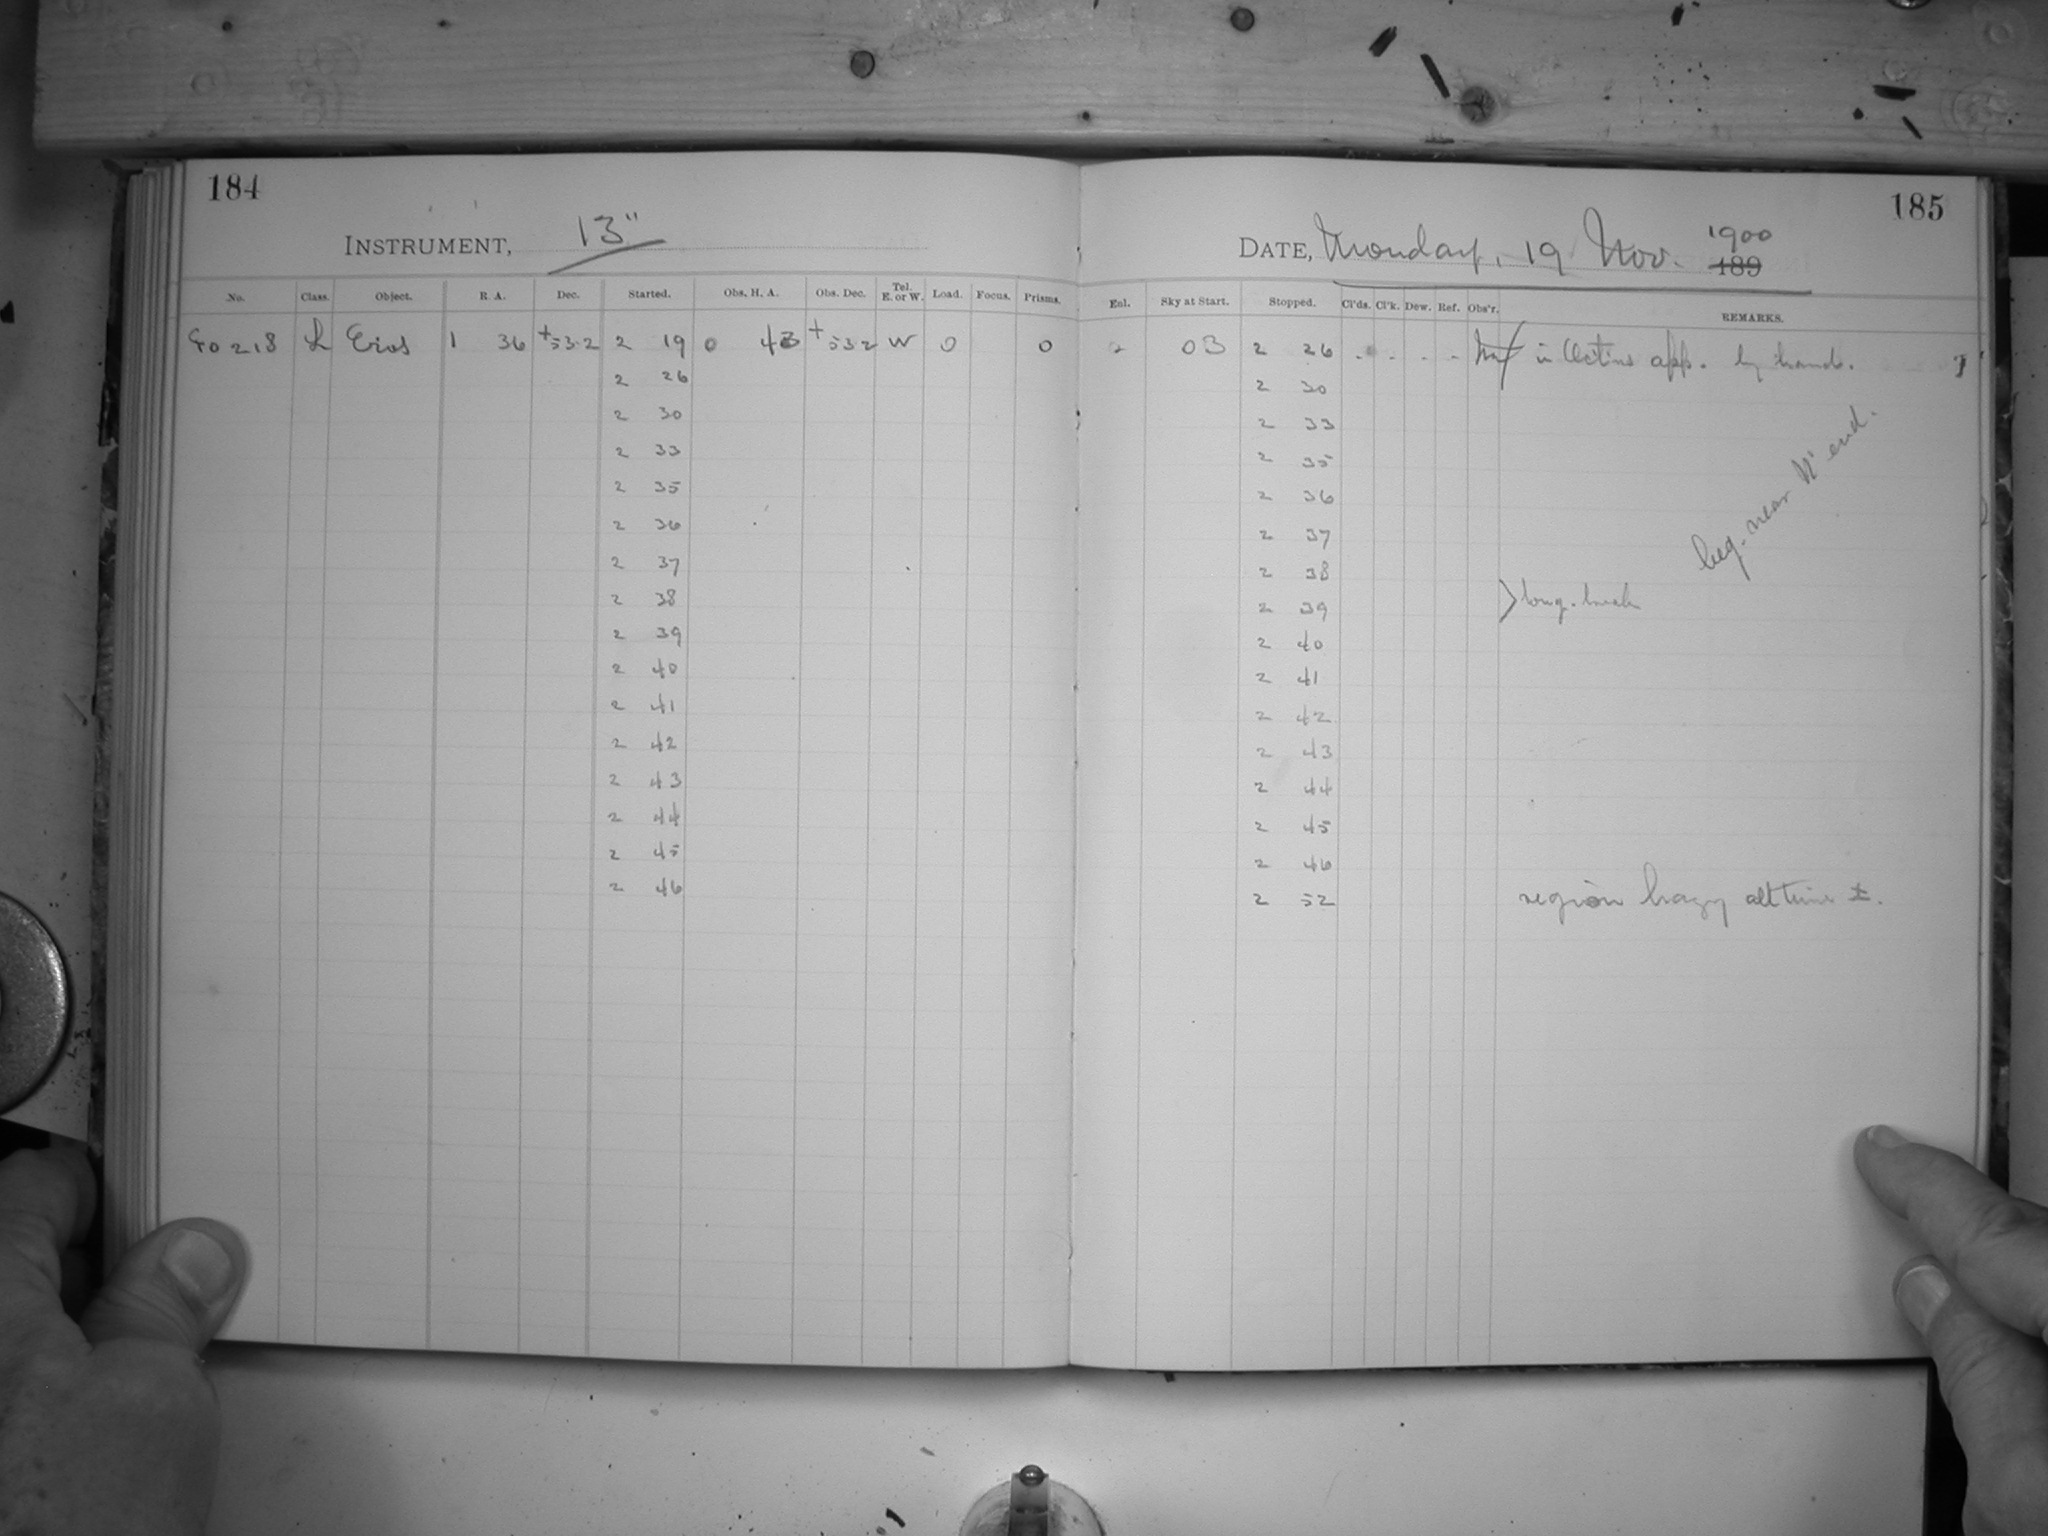 184
INSTRUMENT, 13"
No. Class. Object. R. A. Dec. Started. Obs. H. A. Obs. Dec. Tel. E. or W. Load. Focus. Prisms.
40218 L Eros 1 36 +53.2 2 19 0 43 +532 W 0 0
2 26
2 30
2 33
2 35
2 36
2 37
2 38
2 39
2 40
2 41
2 42
2 43
2 44
2 45
2 46
185
DATE, Monday, 19 Nov. 1900
189
Enl. Sky at Start. Stopped. Cl'ds. Cl'k. Dew. Ref. Obs'r. REMARKS.
2 03 2 26 . . . . in app. by hand.
2 30
2 33
2 35
2 36
2 37
2 38
2 39 long. break
2 40
2 41
2 42
2 43
2 44
2 45
2 46
2 52 region hazy all time ±.
beg. near N end.